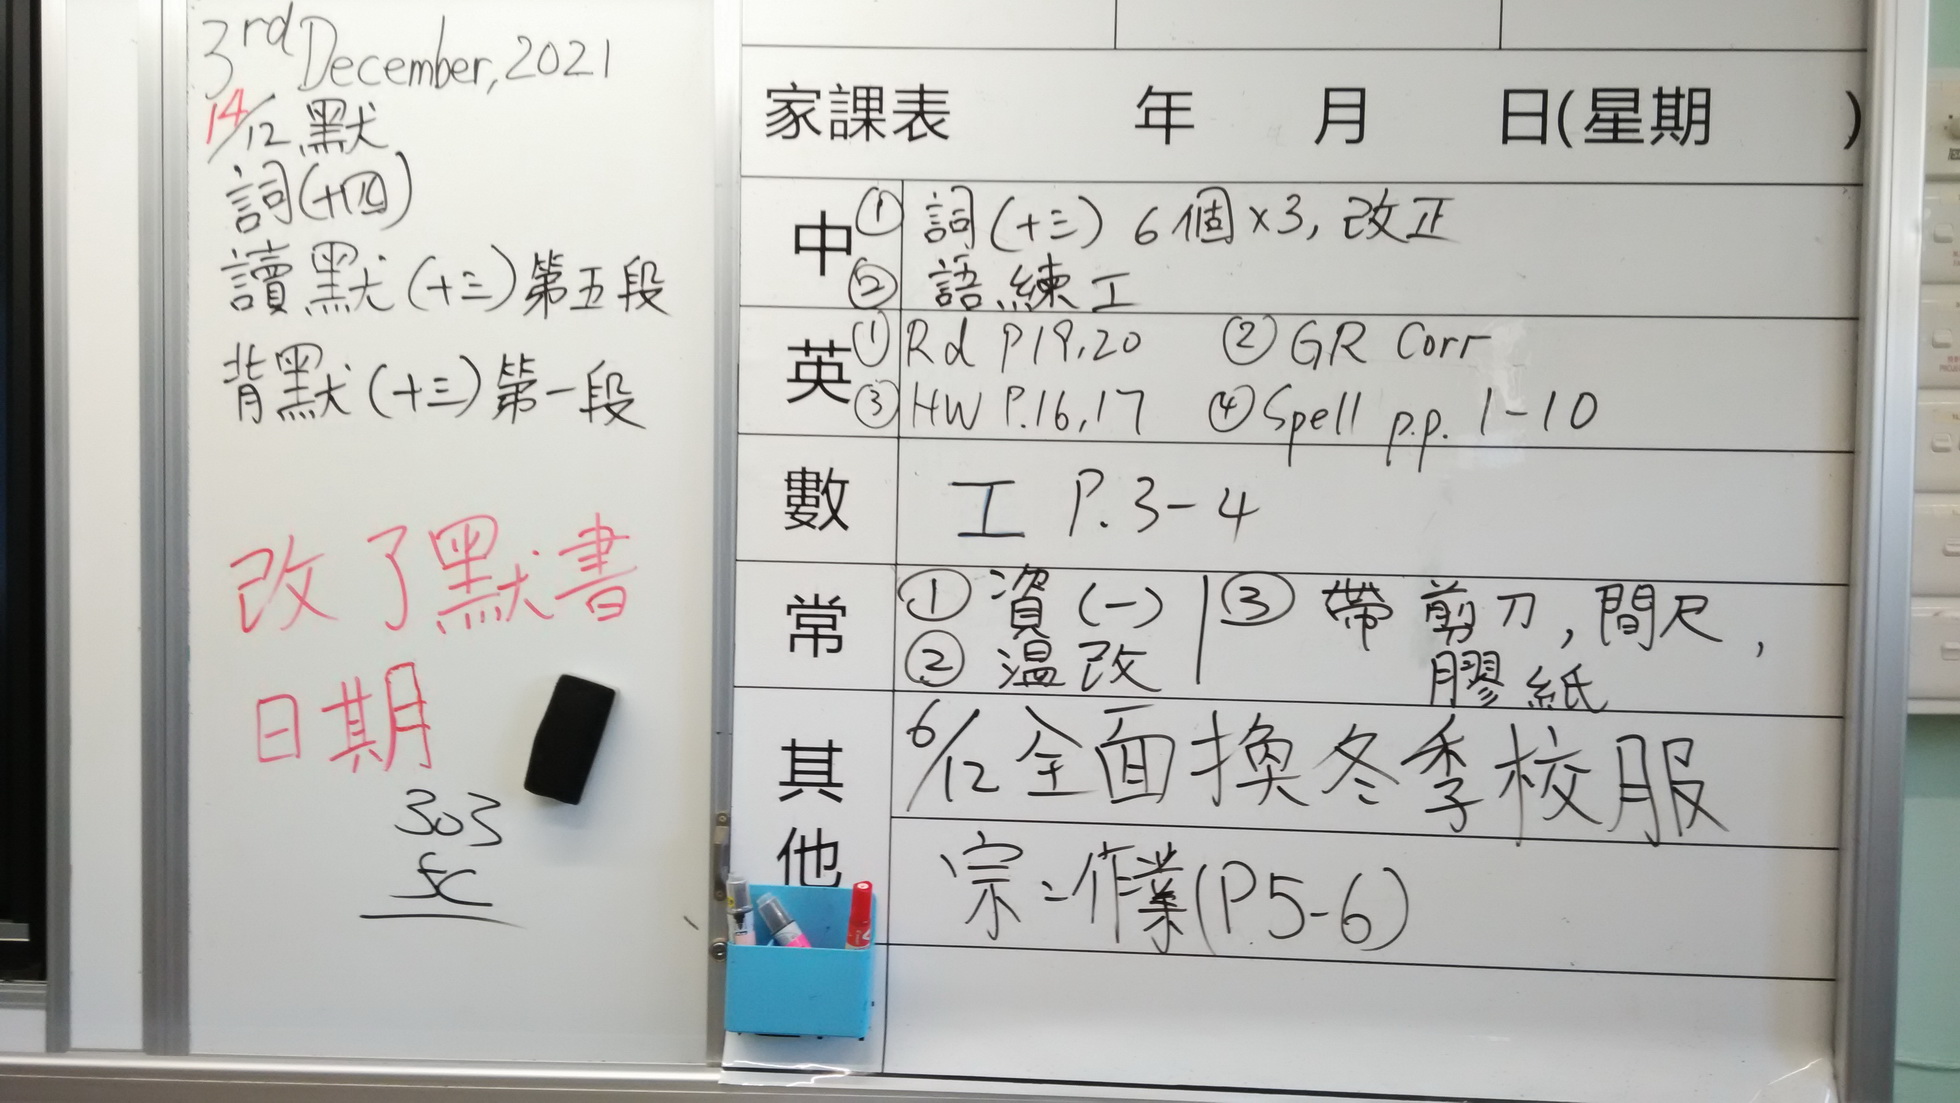 3rd December, 2021
14/12 默
詞(十四)
讀默(十三)第五段
背默(十三)第一段
改了默書
日期
303
5C
家課表 年 月 日(星期 )
中 ① 詞(十三) 6個×3, 改正
② 語練工
英 ① Rd P19,20 ② GR Corr
③ HW P.16,17 ④ Spell p.p. 1-10
數 工 P.3-4
常 ① 資(一) ③ 帶剪刀, 間尺,
② 温改 膠紙
其他 6/12 全面換冬季校服
宗=作業(P5-6)